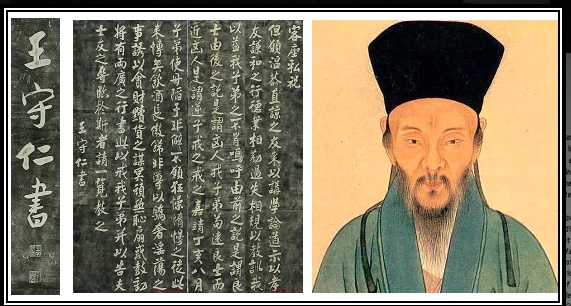 客座私祝
但願溫恭直諒之友来此講學論道示以孝
友謙和之行德業相勸過失相規以教訓我
以益我子弟之不肖嗚呼由前之說是謂良
士由後之說是謂凶人我子弟苟遠良士而
近凶人是謂逆子戒之戒之嘉靖丁亥八月
子弟使毋陷于非僻不願狂懆惰慢之徒此
来博弈飲酒長傲飾非導以驕奢淫蕩之
事誘以貪財黷貨之謀冥頑無恥扇惑鼓動
將有兩廣之行書此以戒我子弟并以告夫
士友之辱臨於斯者請一覽教之
王守仁書
王守仁書